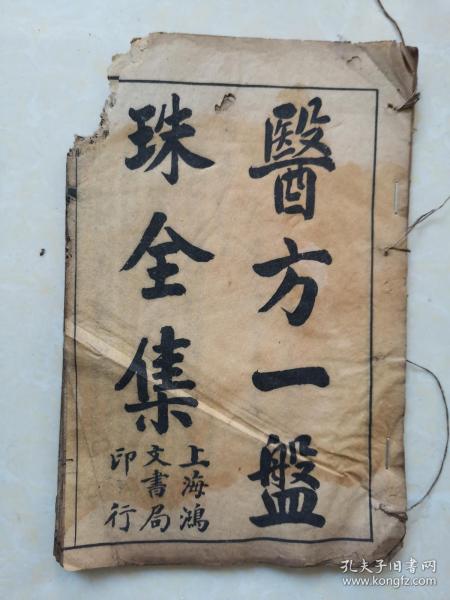 醫方一盤
珠全集
上海鴻
文書局
印行
孔夫子旧书网
www.kongfz.com